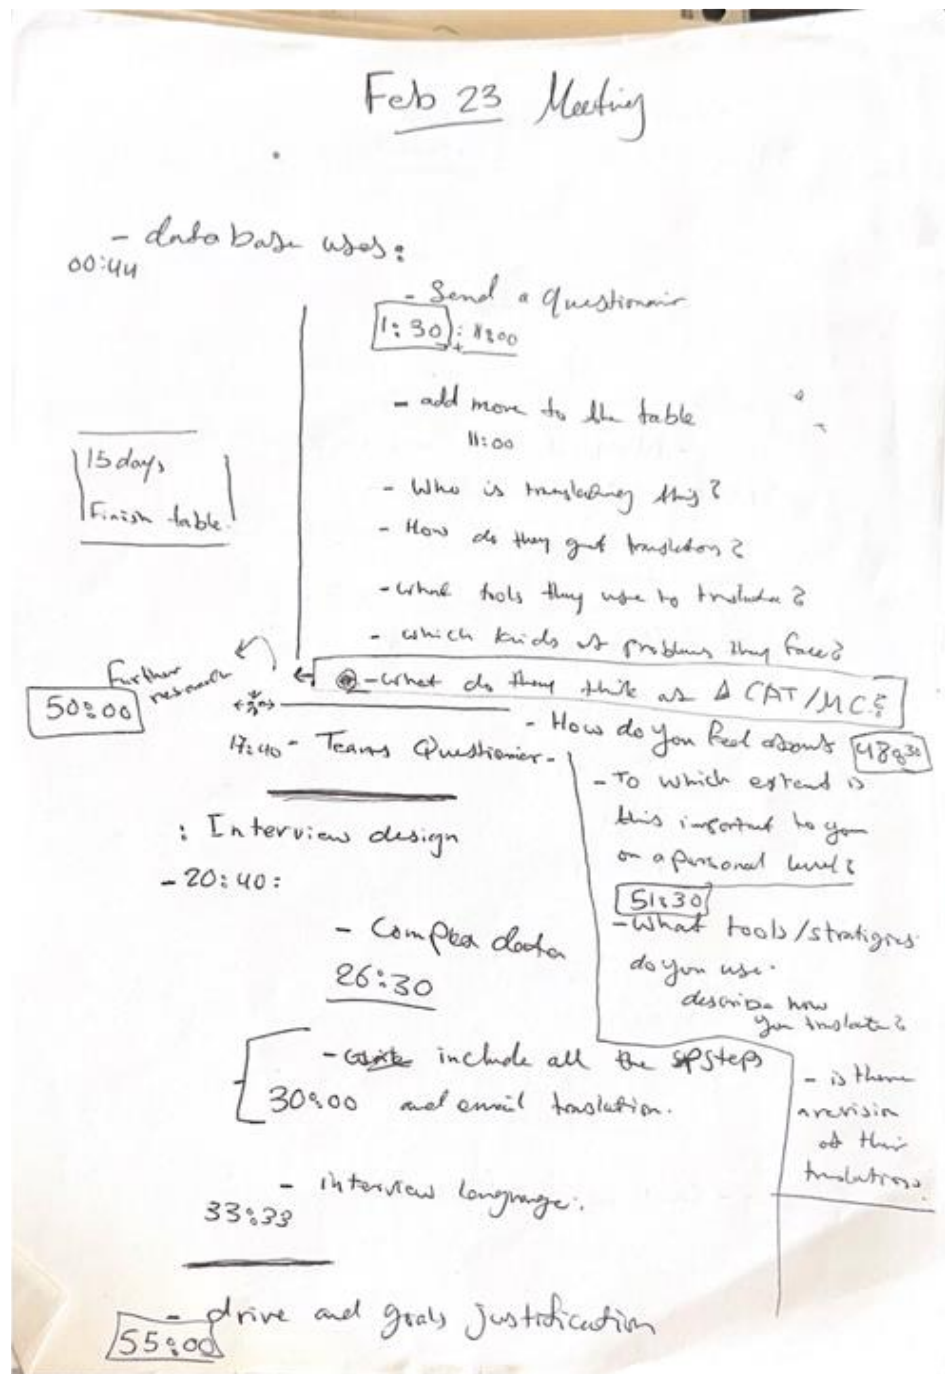 Feb 23 Meeting
- database uses:
00:44
- Send a questionair
1:30 : 11:00
- add more to the table
11:00
15 days
Finish table.
- Who is translating this?
- How do they get translators?
- what tools they use to translate?
- which kinds of problems they face?
- what do they think as Δ CAT/MC?
Further research
50:00
- How do you feel about 48:30
17:40 - Teams Questioner -
- To which extend is
this important to you
on a personal level?
51:30
: Interview design
- 20:40:
- What tools/stratigies
do you use.
describe how
you translate?
- Complex data
26:30
- include all the steps
30:00 and email translation.
- is there
a revision
of their
translations.
- interview language.
33:33
- drive and goals justification
55:00